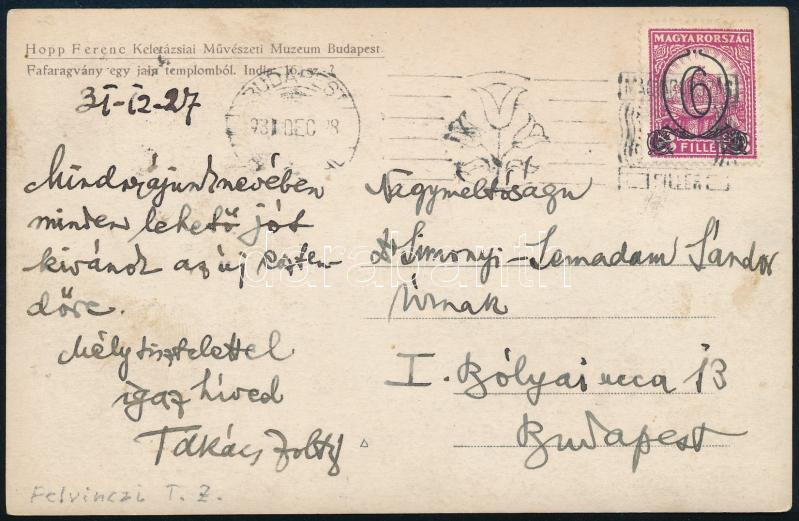 Hopp Ferenc Keletázsiai Művészeti Muzeum Budapest.
Fafaragvány egy jain templomból. India. 16. sz.
31-12-27
BUDAPEST
931 DEC 28
MAGYARORSZÁG
6
FILLÉR
FILLÉR
Mindnyájunk nevében
minden lehető jót
kivánok az új eszten-
dőre.
Mély tisztelettel
igaz híved
Takács Zoltán
Nagyméltóságu
Dr Simonyi-Semadam Sándor
Úrnak
I. Bólyai ucca 13
Budapest
Felvinczi T. Z.
darabanth